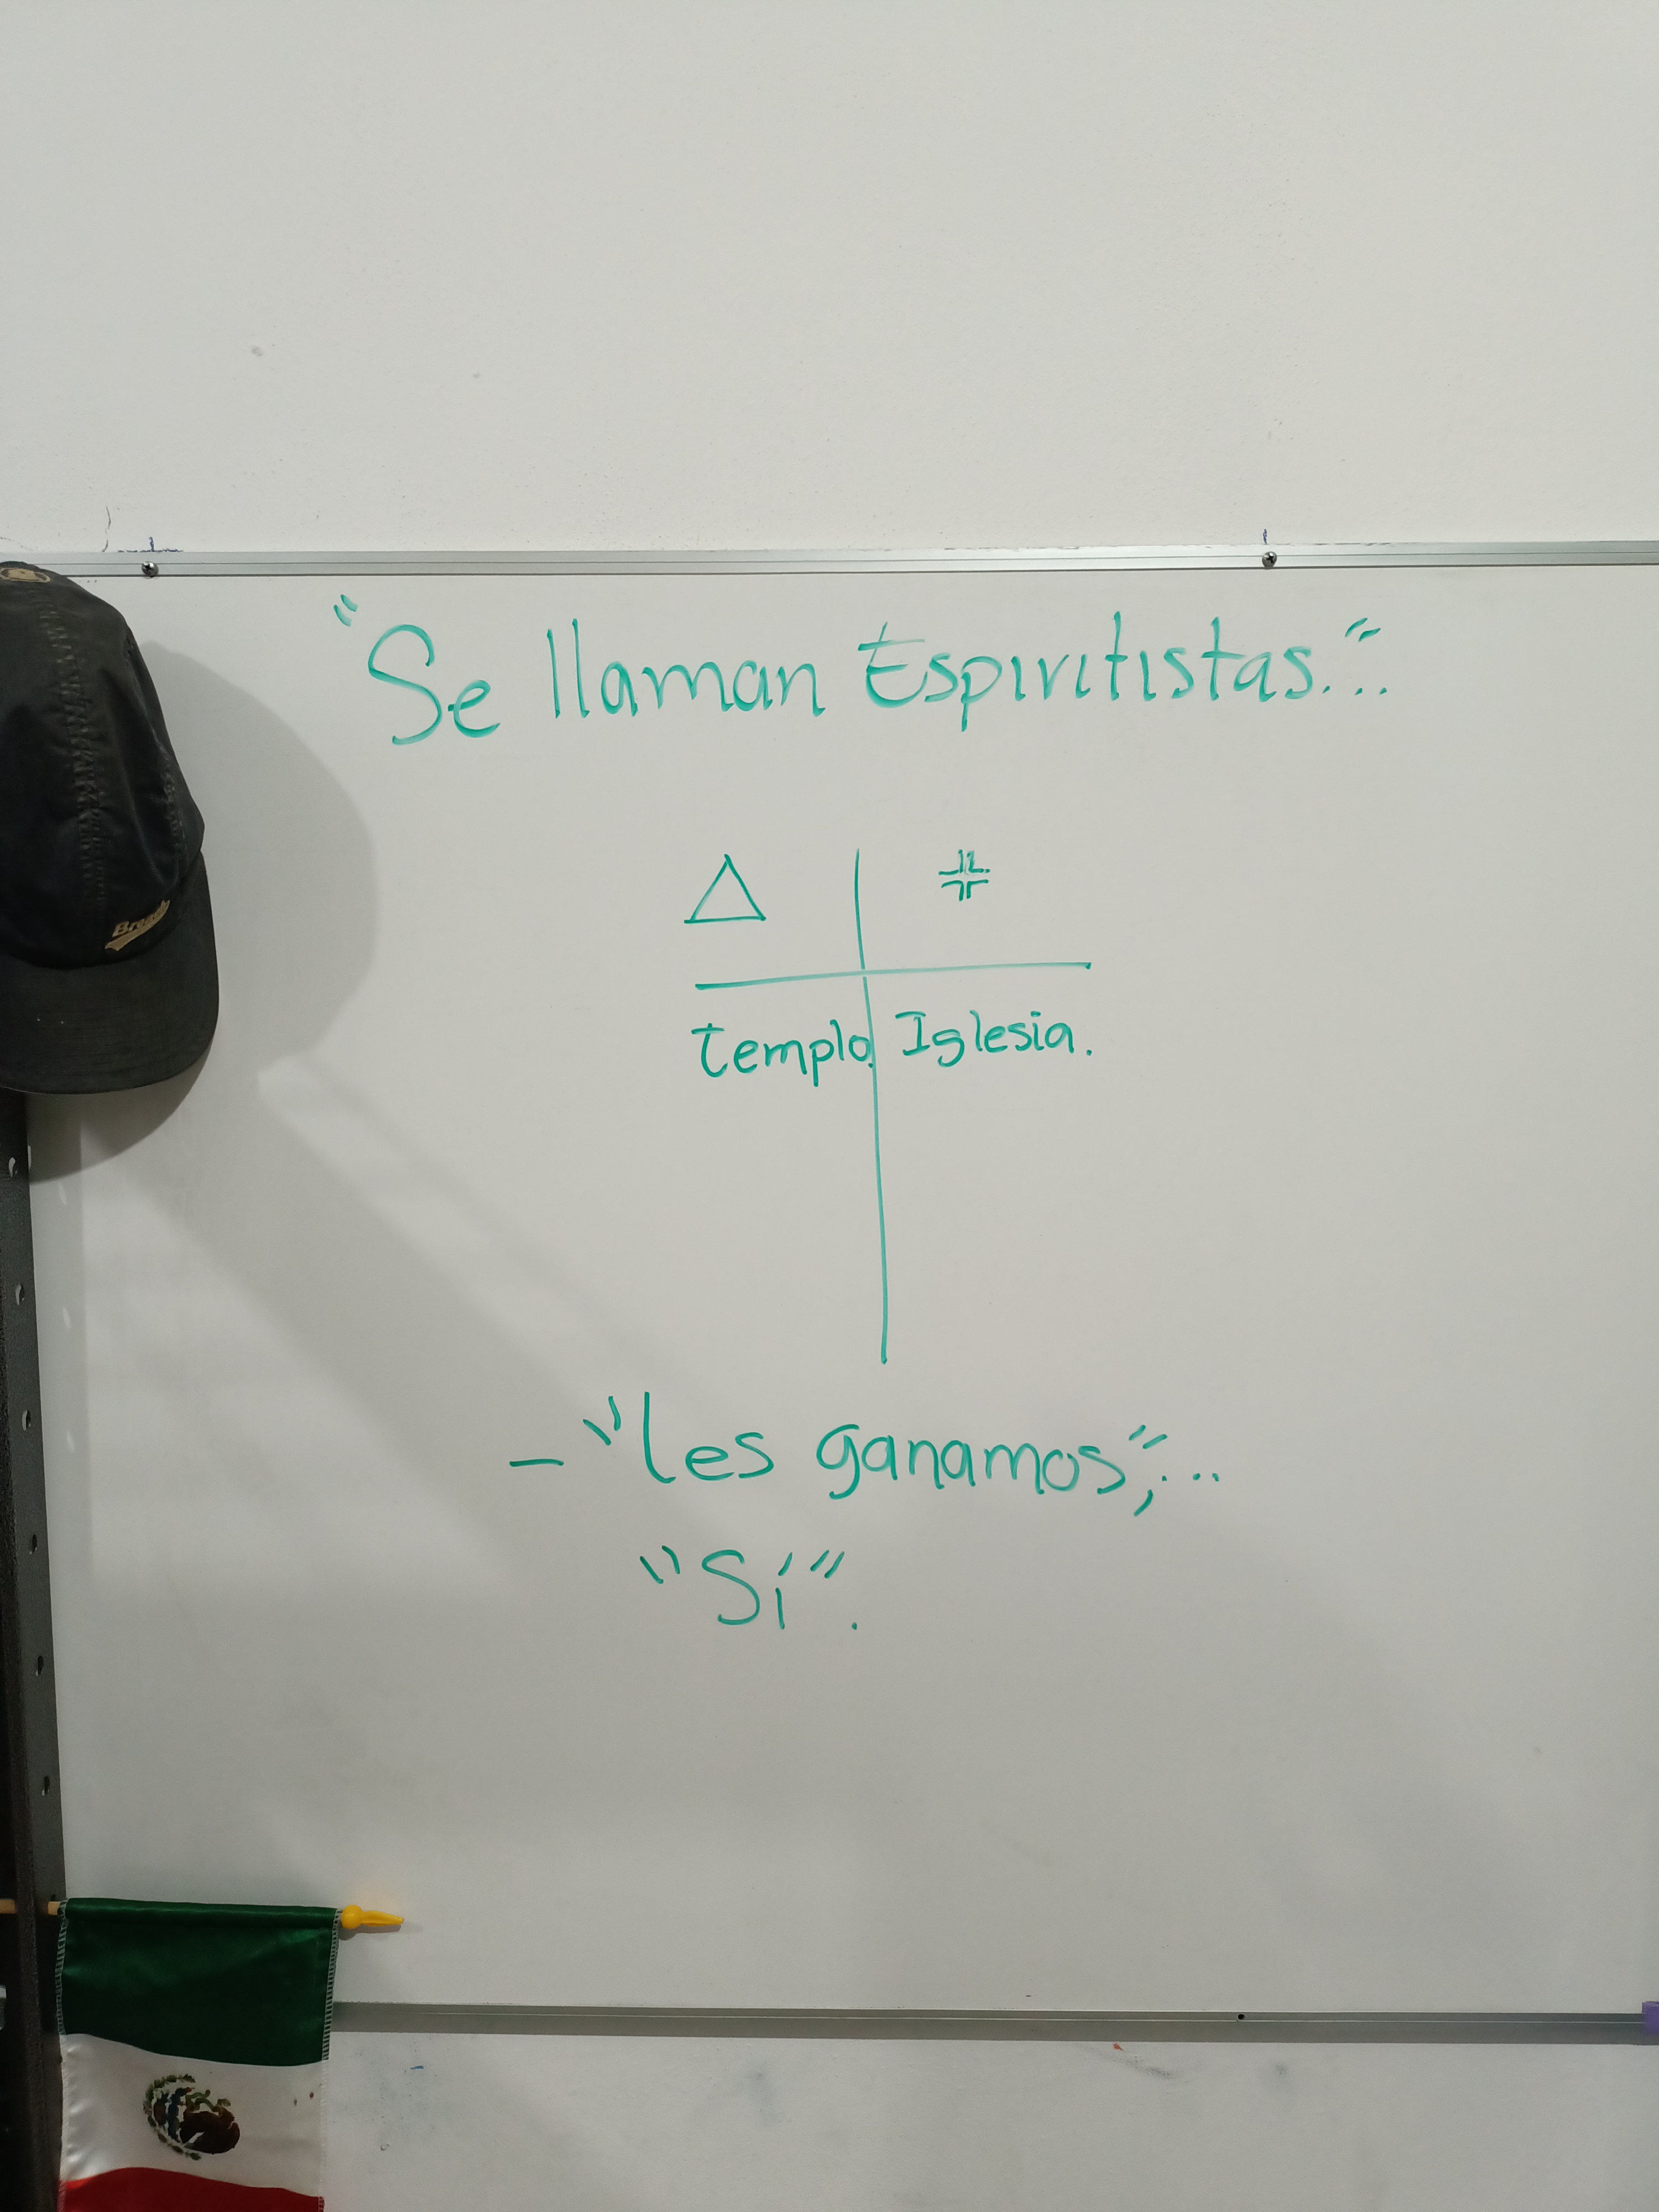 "Se llaman Espiritistas..."
templo. Iglesia.
- "les ganamos";...
"Sí".